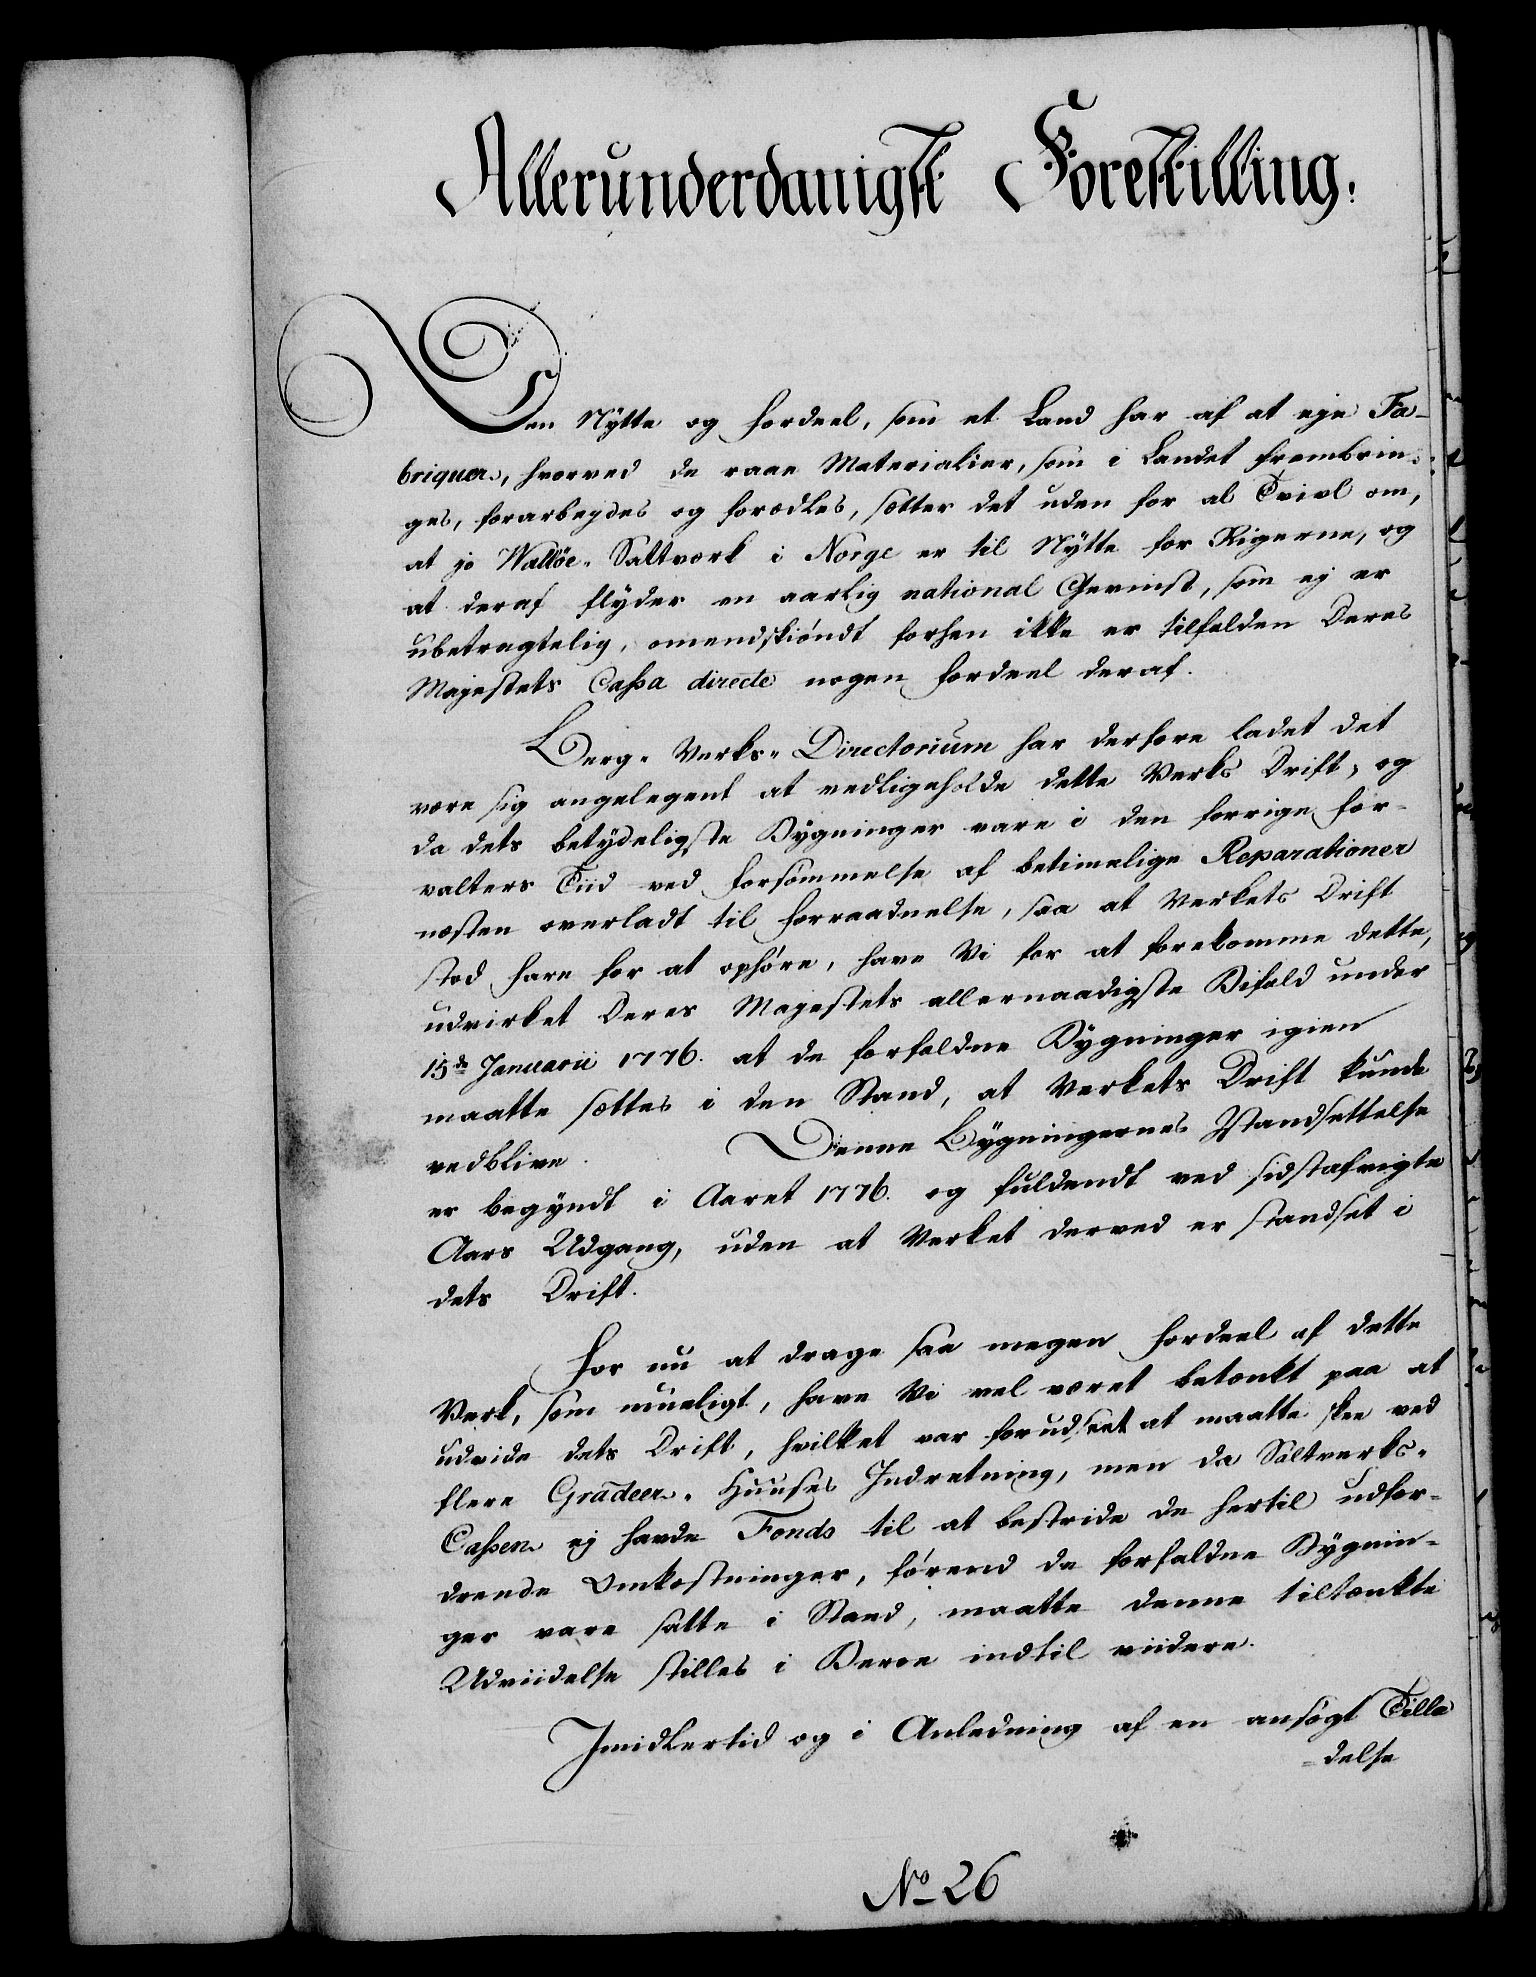 Allerunderdanigst Forestilling.
Den Nÿtte og Fordeel, som et Land har af at eje Fa-
briquer, hvorved de raae Materialier, som i Landet frembrin-
ges, forarbejdes og forædles, sætter det uden for al Tvivl om,
at jo Walløe-Saltværk i Norge er til Nÿtte for Rigerne, og
at deraf flÿder en aarlig national Gevinst, som ej er
ubetragtelig, omendskiøndt forhen ikke er tilfalden Deres
Majestets Cassa directe nogen Fordeel deraf.
Berg-Verks-Directorium har derfore ladet det
være sig angelegent at vedligeholde dette Verks Drift, og
da dets betÿdeligste Bÿgninger vare i den forrige For-
valters Tiid ved Forsømmelse af betimelige Reparationer
næsten overladt til Forraadnelse, saa at Verkets Drift
stod Fare for at ophøre, have Vi for at forekomme dette,
udvirket Deres Majestets allernaadigste Bifald under
15de Januarii 1776. at de forfaldne Bÿgninger igien
maatte sættes i den Stand, at Verkets Drift kunde
vedblive. Denne Bÿgningernes Istandsettelse
er begÿndt i Aaret 1776. og fuldendt ved sidstafvigte
Aars Udgang, uden at Verket derved er standset i
dets Drift.
For nu at drage saa megen Fordeel af dette
Verk, som mueligt, have Vi vel været betænkt paa at
udvide dets Drift, hvilket var forudseet at maatte skee ved
flere Gradeer-Huuses Indretning, men da Saltverks-
Cassen ej havde Fonds til at bestride de hertil udfor-
drende Omkostninger, førend de forfaldne Bÿgnin-
ger vare satte i Stand, maatte denne tiltænkte
Udviidelse stilles i Beroe indtil viidere.
Imidlertid og i Anledning af en ansøgt Tilla
=delse
No 26